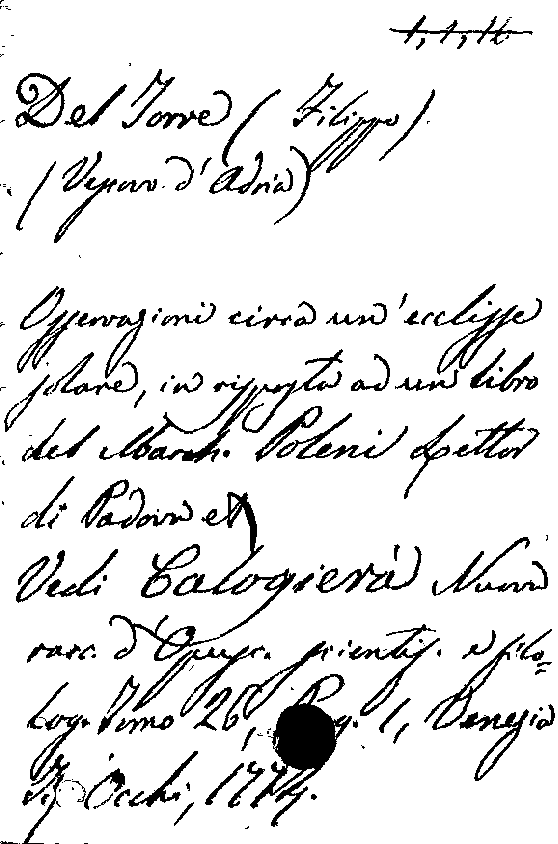 1, 1, 14
Del Torre (Filippo)
(Vescovo d'Adria)
Osservazioni circa un'ecclisse
solare, in risposta ad un libro
del March. Poleni Lettor
di Padova et
Vedi Calogierà Nuova
racc. d'Opusc. scientif. e filo=
log. Tomo 26, Pag. 1, Venezia
Occhi, 1774.